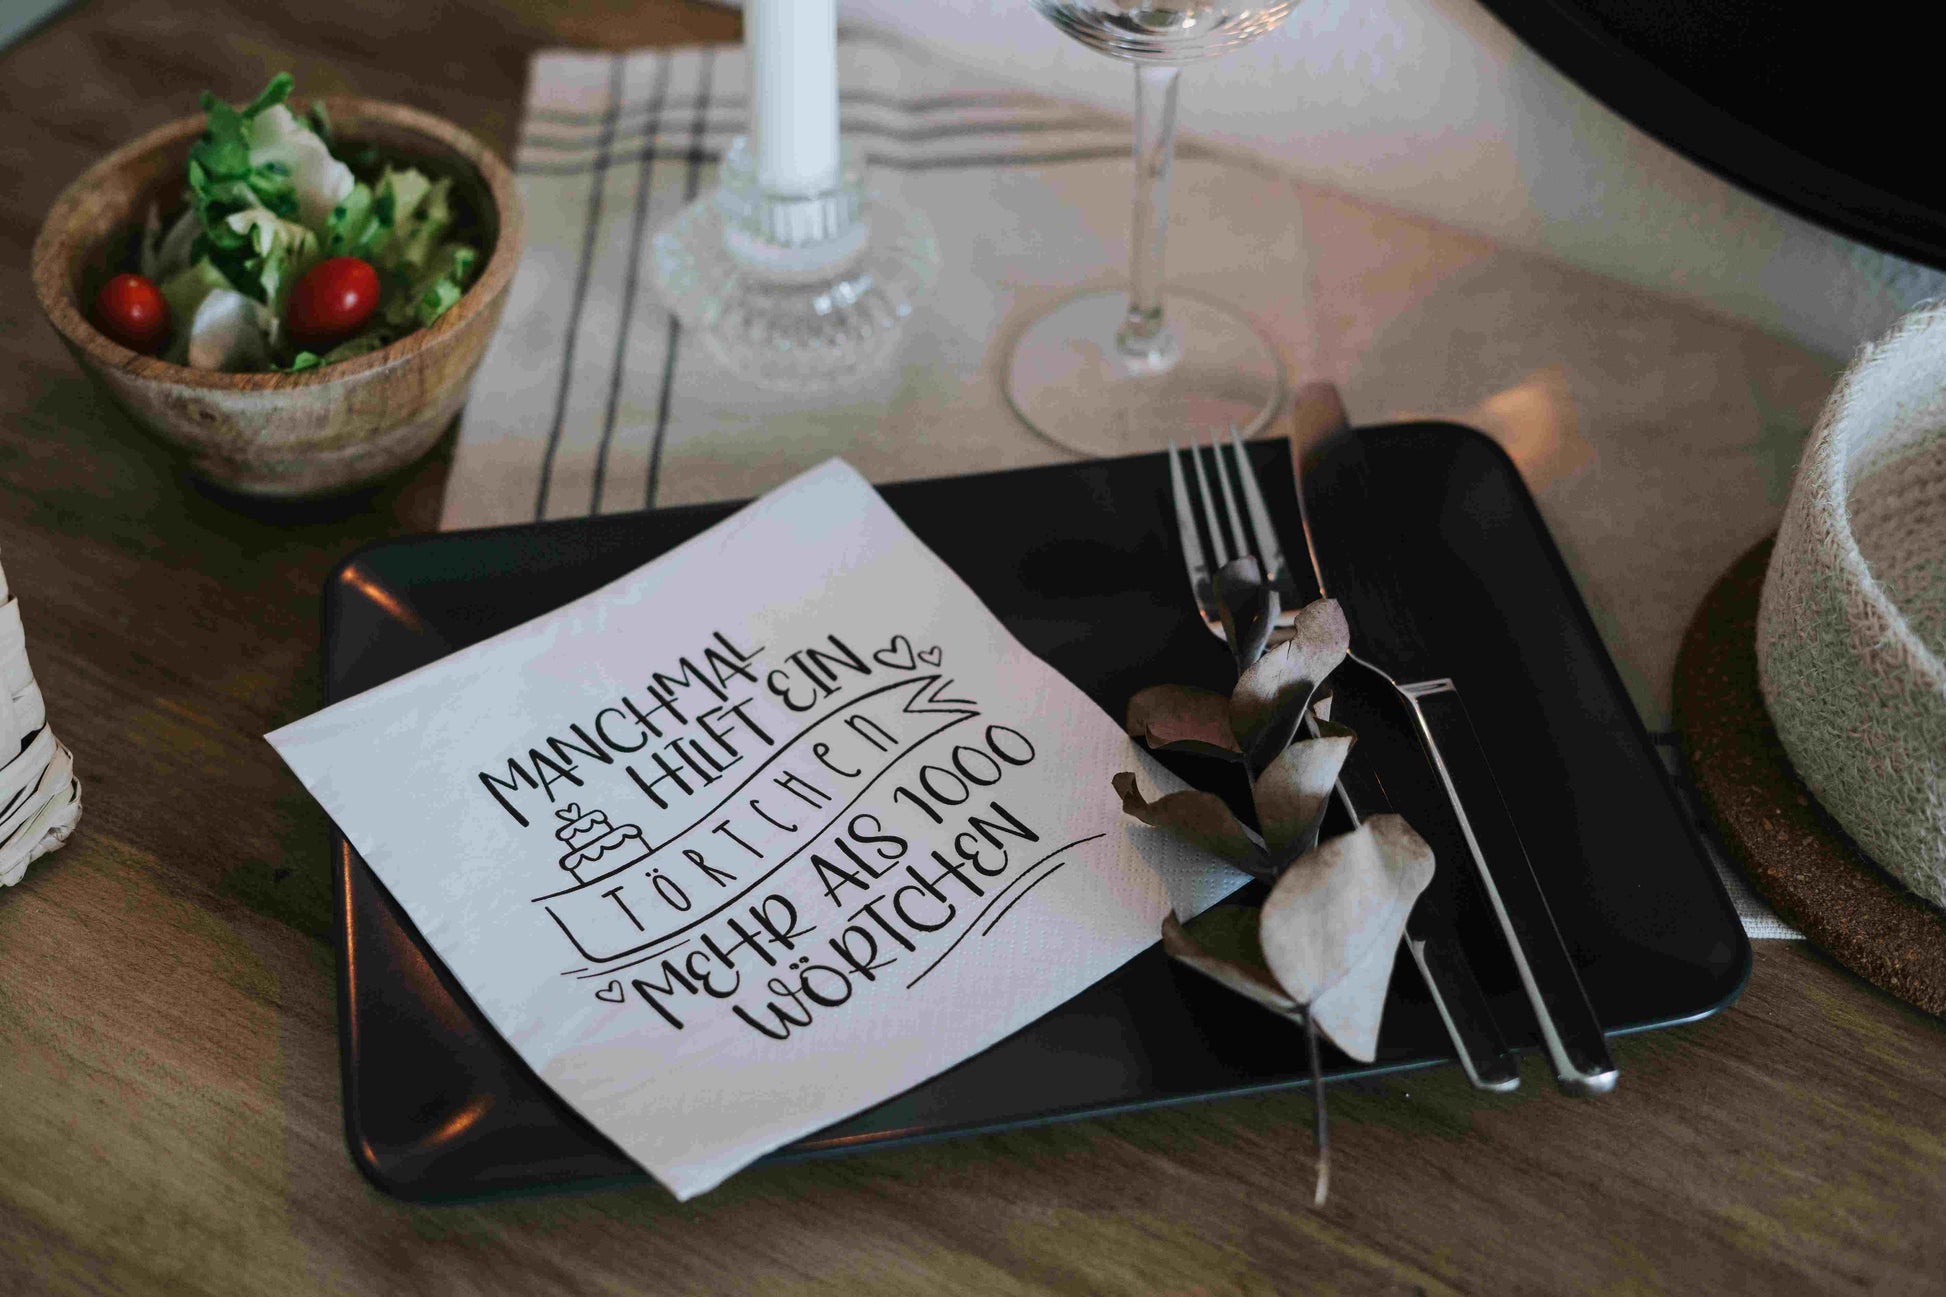 MANCHMAL
HILFT EIN
TÖRTCHEN
MEHR ALS 1000
WÖRTCHEN